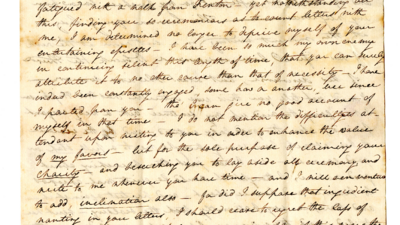 fatigued with a walk from Trenton - yet notwithstanding all
this, finding you so ceremonious as to count letters with
me I am determined no longer to deprive myself of your
entertaining epistles - I have been so much my own enemy
in continuing silent this length of time, that you can surely
attribute it to no other cause than that of necessity - I have
indeed been constantly engaged, some how or another, ever since
I parted from you - tho' I can give no good account of
myself in that time - I do not mention the difficulties at-
tendant upon writing to you in order to enhance the value
of my favors - but for the sole purpose of claiming your
charity - and beseeching you to lay aside all ceremony and
write to me whenever you have time - and I will even venture
to add, inclination also - for did I suppose that ingredient
wanting in your letters, I should cease to regret the loss of